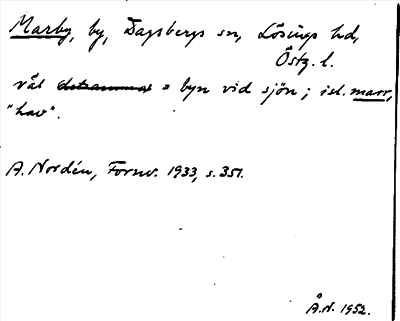 Marby, by, Dagsbergs sn, Lösings hd,
Östg. l.
väl detsamma = byn vid sjön; isl. marr,
"hav".
A. Nordén, Fornv. 1933, s. 351.
Å.N. 1952.